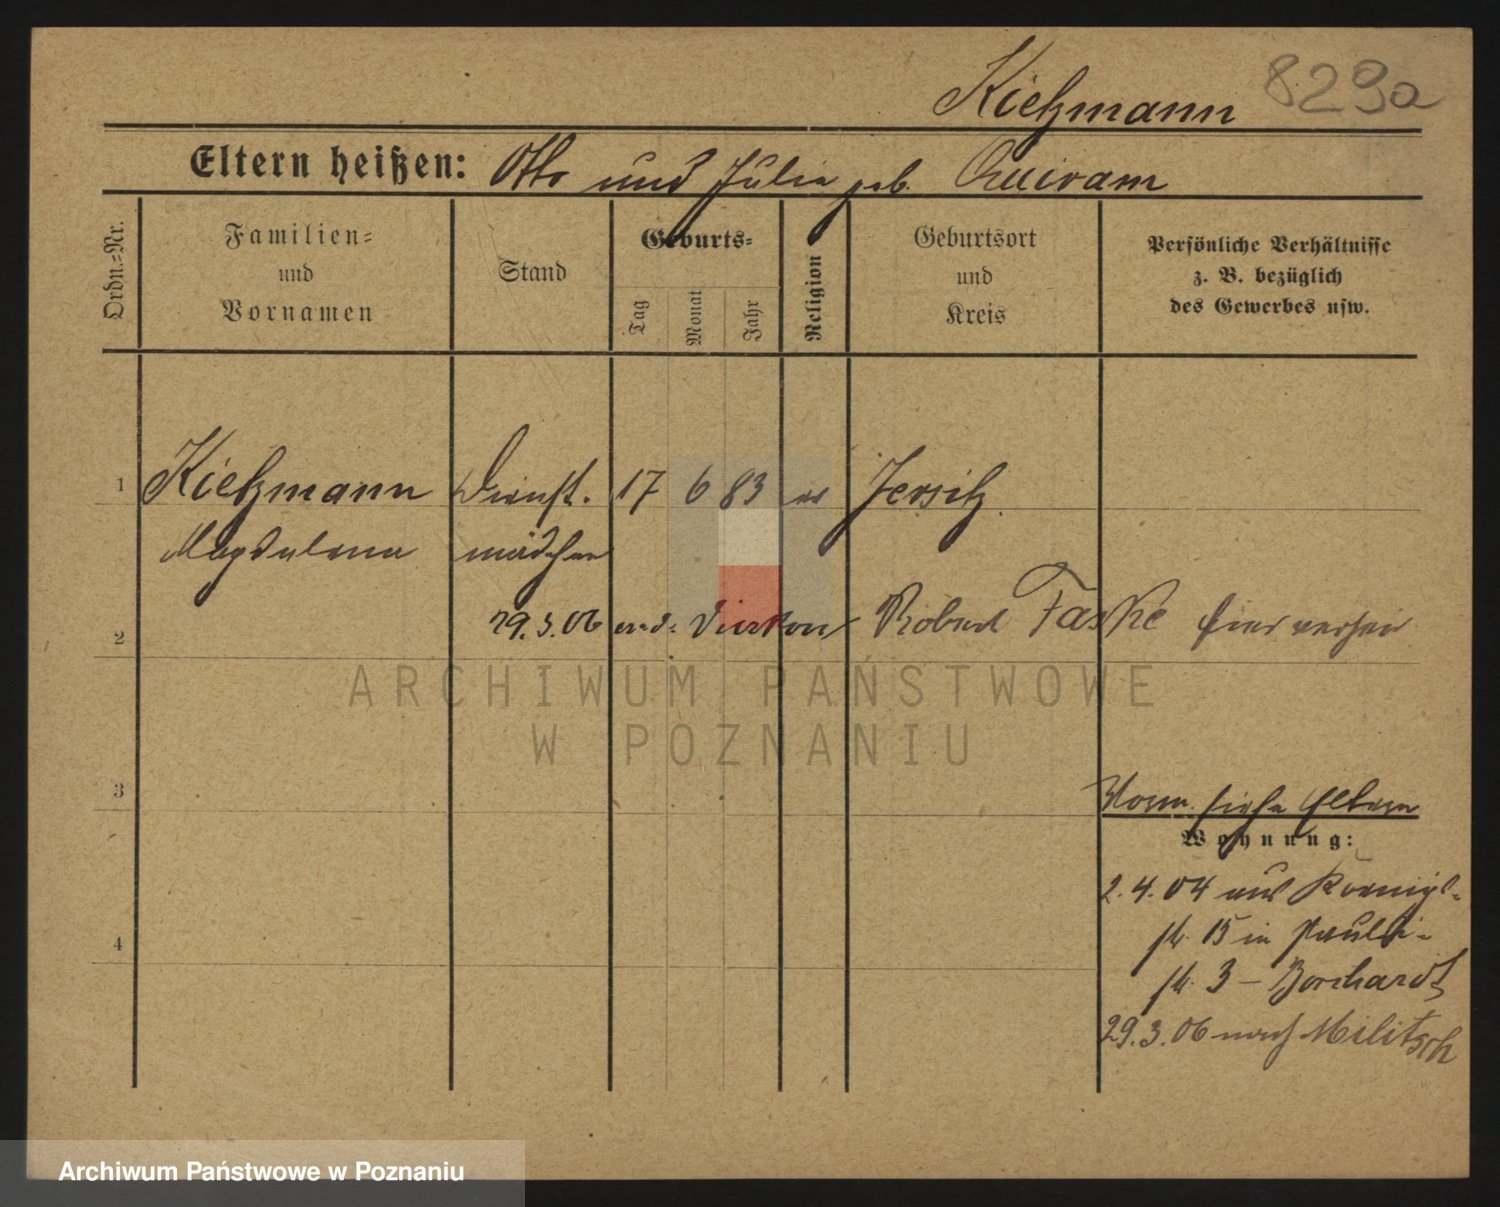 829a
Kietzmann
Eltern heißen: Otto und Julie geb. Quiram
Ordn.-Nr.
Familien-
und
Vornamen
Stand
Geburts-
Tag
Monat
Jahr
Religion
Geburtsort
und
Kreis
Persönliche Verhältnisse
z. B. bezüglich
des Gewerbes usw.
1 Kietzmann Dienst- 17 6 83 ev Jersitz
Magdalena mädchen
2 29.3.06 Robert Faske
3
Vorm. siehe Eltern
Wohnung:
2.4.04 aus Koenigs-
str. 15 in Pauli-
4
str. 3 – Borchardt
29.3.06 nach Militsch
ARCHIWUM PAŃSTWOWE
W POZNANIU
Archiwum Państwowe w Poznaniu